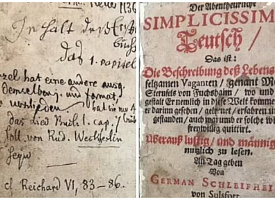 Inhalt deß
das 1. capitel
hat eine andere ausg.
das lied Buch 1. cap. 7
soll von Rud. Weckherlin
seyn
cf. Reichard VI, 83–86.
Der Abentheurliche
SIMPLICISSIMUS
Teutsch/
Das ist:
Die Beschreibung deß Lebens
seltzamen Vaganten / genant Mel
Sternfels von Fuchshaim / wo und
gestalt Er nemlich in diese Welt kommen
er darinn gesehen / gelernet / erfahren und
gestanden / auch warumb er solche wieder
freywillig quittirt.
Überauß lustig / und männiglich
nutzlich zu lesen.
An Tag geben
Von
GERMAN SCHLEIFHEIM
von Sulsfort